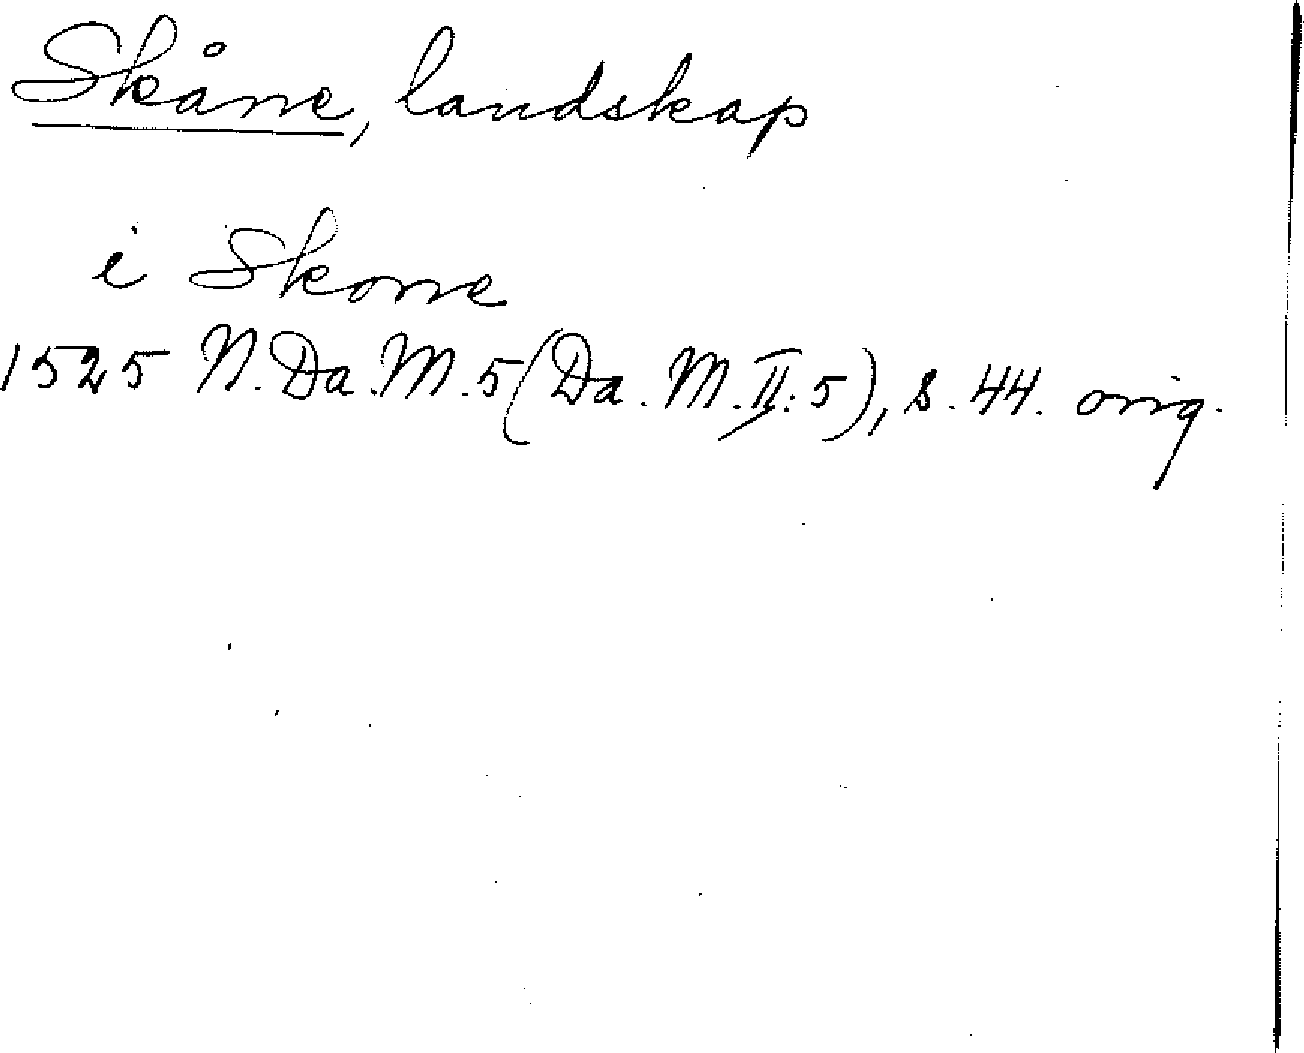 Skåne, landskap
i Skone
1525 N. Da. M. 5 (Da. M. II: 5), s. 44. orig.